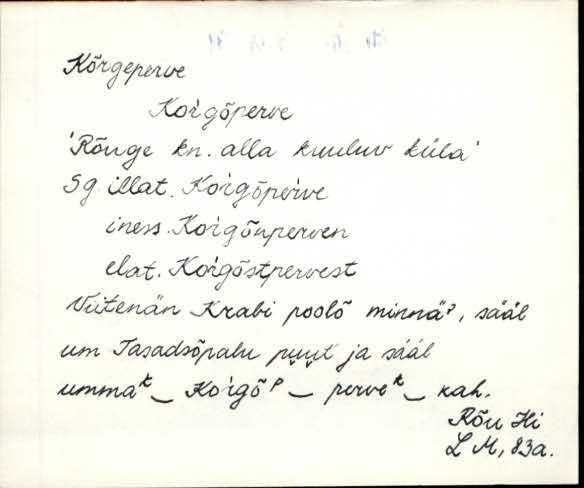 Kõrgeperve
Ko͔rgõperve
'Rõuge kn. alla kuuluv küla'
Sg illat. Ko͔rgõpe͔rve
iness. Ko͔rgõnperven
elat. Ko͔rgõstpervest
Viitenän Krabi poolõ minnäˀ, sääl
um Tasadsõpalu puut ja sääl
ummaᵏ‿Ko͔rgõᵖ‿perveᵏ‿kah.
Rõu Hi
L M, 83a.